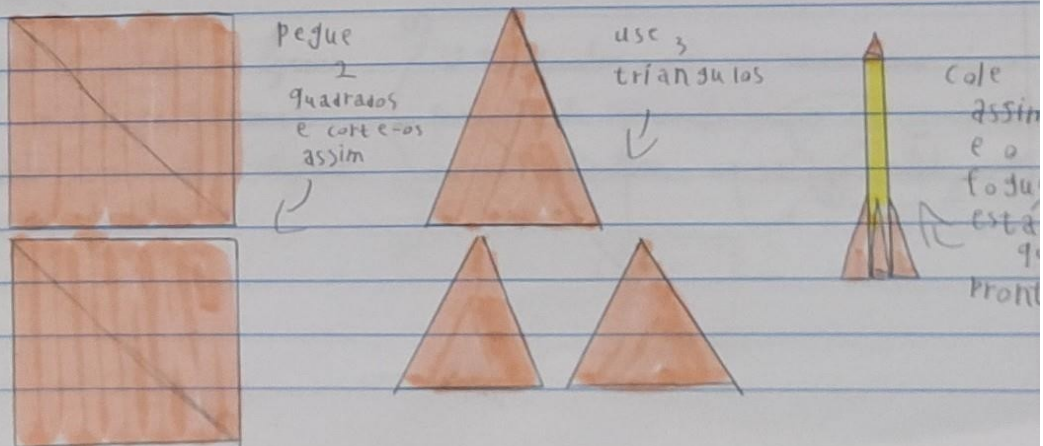 pegue
2
quadrados
e corte-os
assim
use 3
triangulos
Cole
assim
e o
fogu
está
qu
Pront